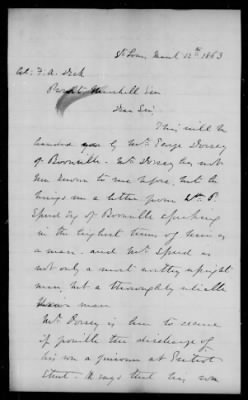 St Louis March 12th 1863
Col. F. A. Dick
Provost Marshall Gen
Dear Sir,
This will be
handed you by Mr. George Dorsey
of Boonville. Mr. Dorsey has not
been known to me before, but he
brings me a letter from
Speed Esq of Boonville speaking
in the highest terms of him as
a man. and Mr Speed is
not only a most worthy upright
man, but a thoroughly reliable
Union man
Mr Dorsey is here to secure
if possible the discharge of
his son a prisoner at Gratiot
Street. He says that his son